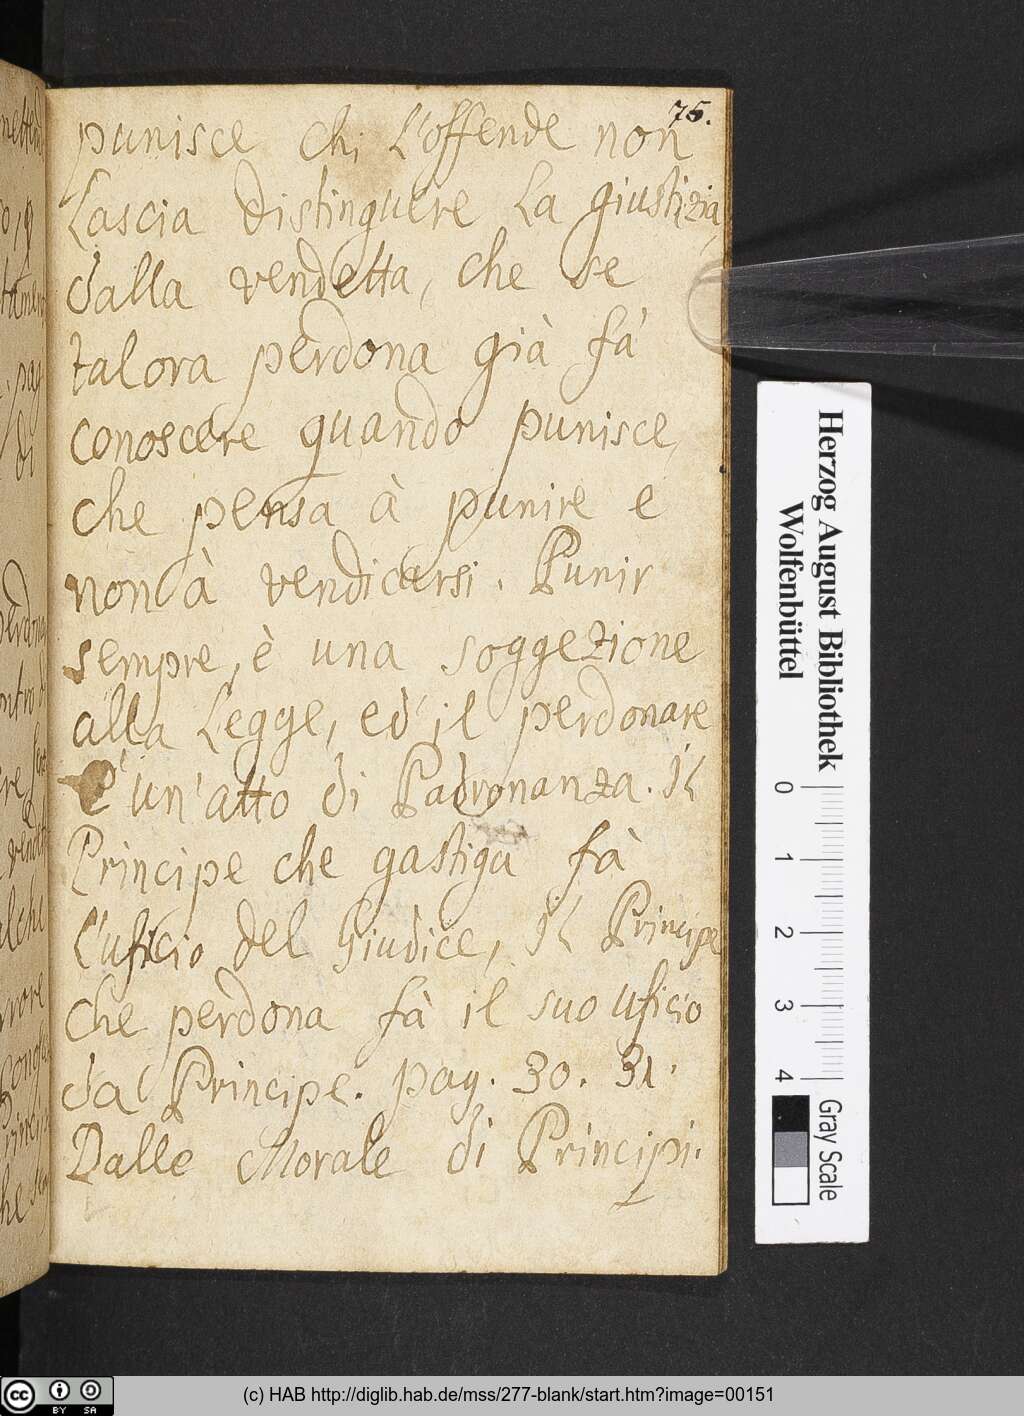 75.
punisce chi l'offende non
lascia distinguere la giustizia
dalla vendetta, che se
talora perdona già fà
conoscere quando punisce,
che pensa à punire e
non à vendicarsi. Punir
sempre, è una soggezione
alla Legge, ed il perdonare
è un'atto di Padronanza. Il
Principe che gastiga fà
l'uficio del Giudice, Il Principe
che perdona fà il suo uficio
da Principe. pag. 30. 31.
Dalle Morale di Principi.
Herzog August Bibliothek
Wolfenbüttel
0 1 2 3 4
Gray Scale
cc BY SA
(c) HAB http://diglib.hab.de/mss/277-blank/start.htm?image=00151